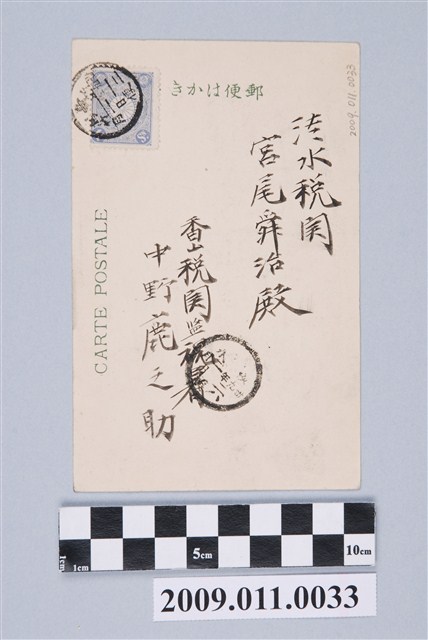 郵便はかき
CARTE POSTALE
2009.011.0033
淡水税関
宮尾舜治殿
香山税関監視署
中野鹿之助
1cm
1cm
5cm
10cm
2009.011.0033